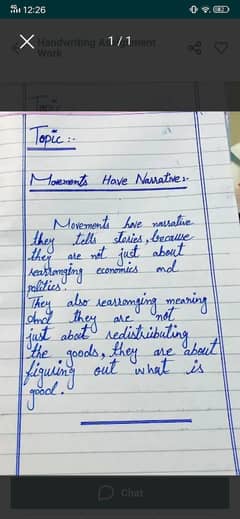 12:26
Handwriting Assignment
Work
1/1
Topic
Topic :-
Movements Have Narrative:-
Movements have narrative
they tells stories, because
they are not just about
rearranging economics and
politics.
They also rearranging meaning
And they are not
just about redistributing
the goods, they are about
figuring out what is
good.
Chat